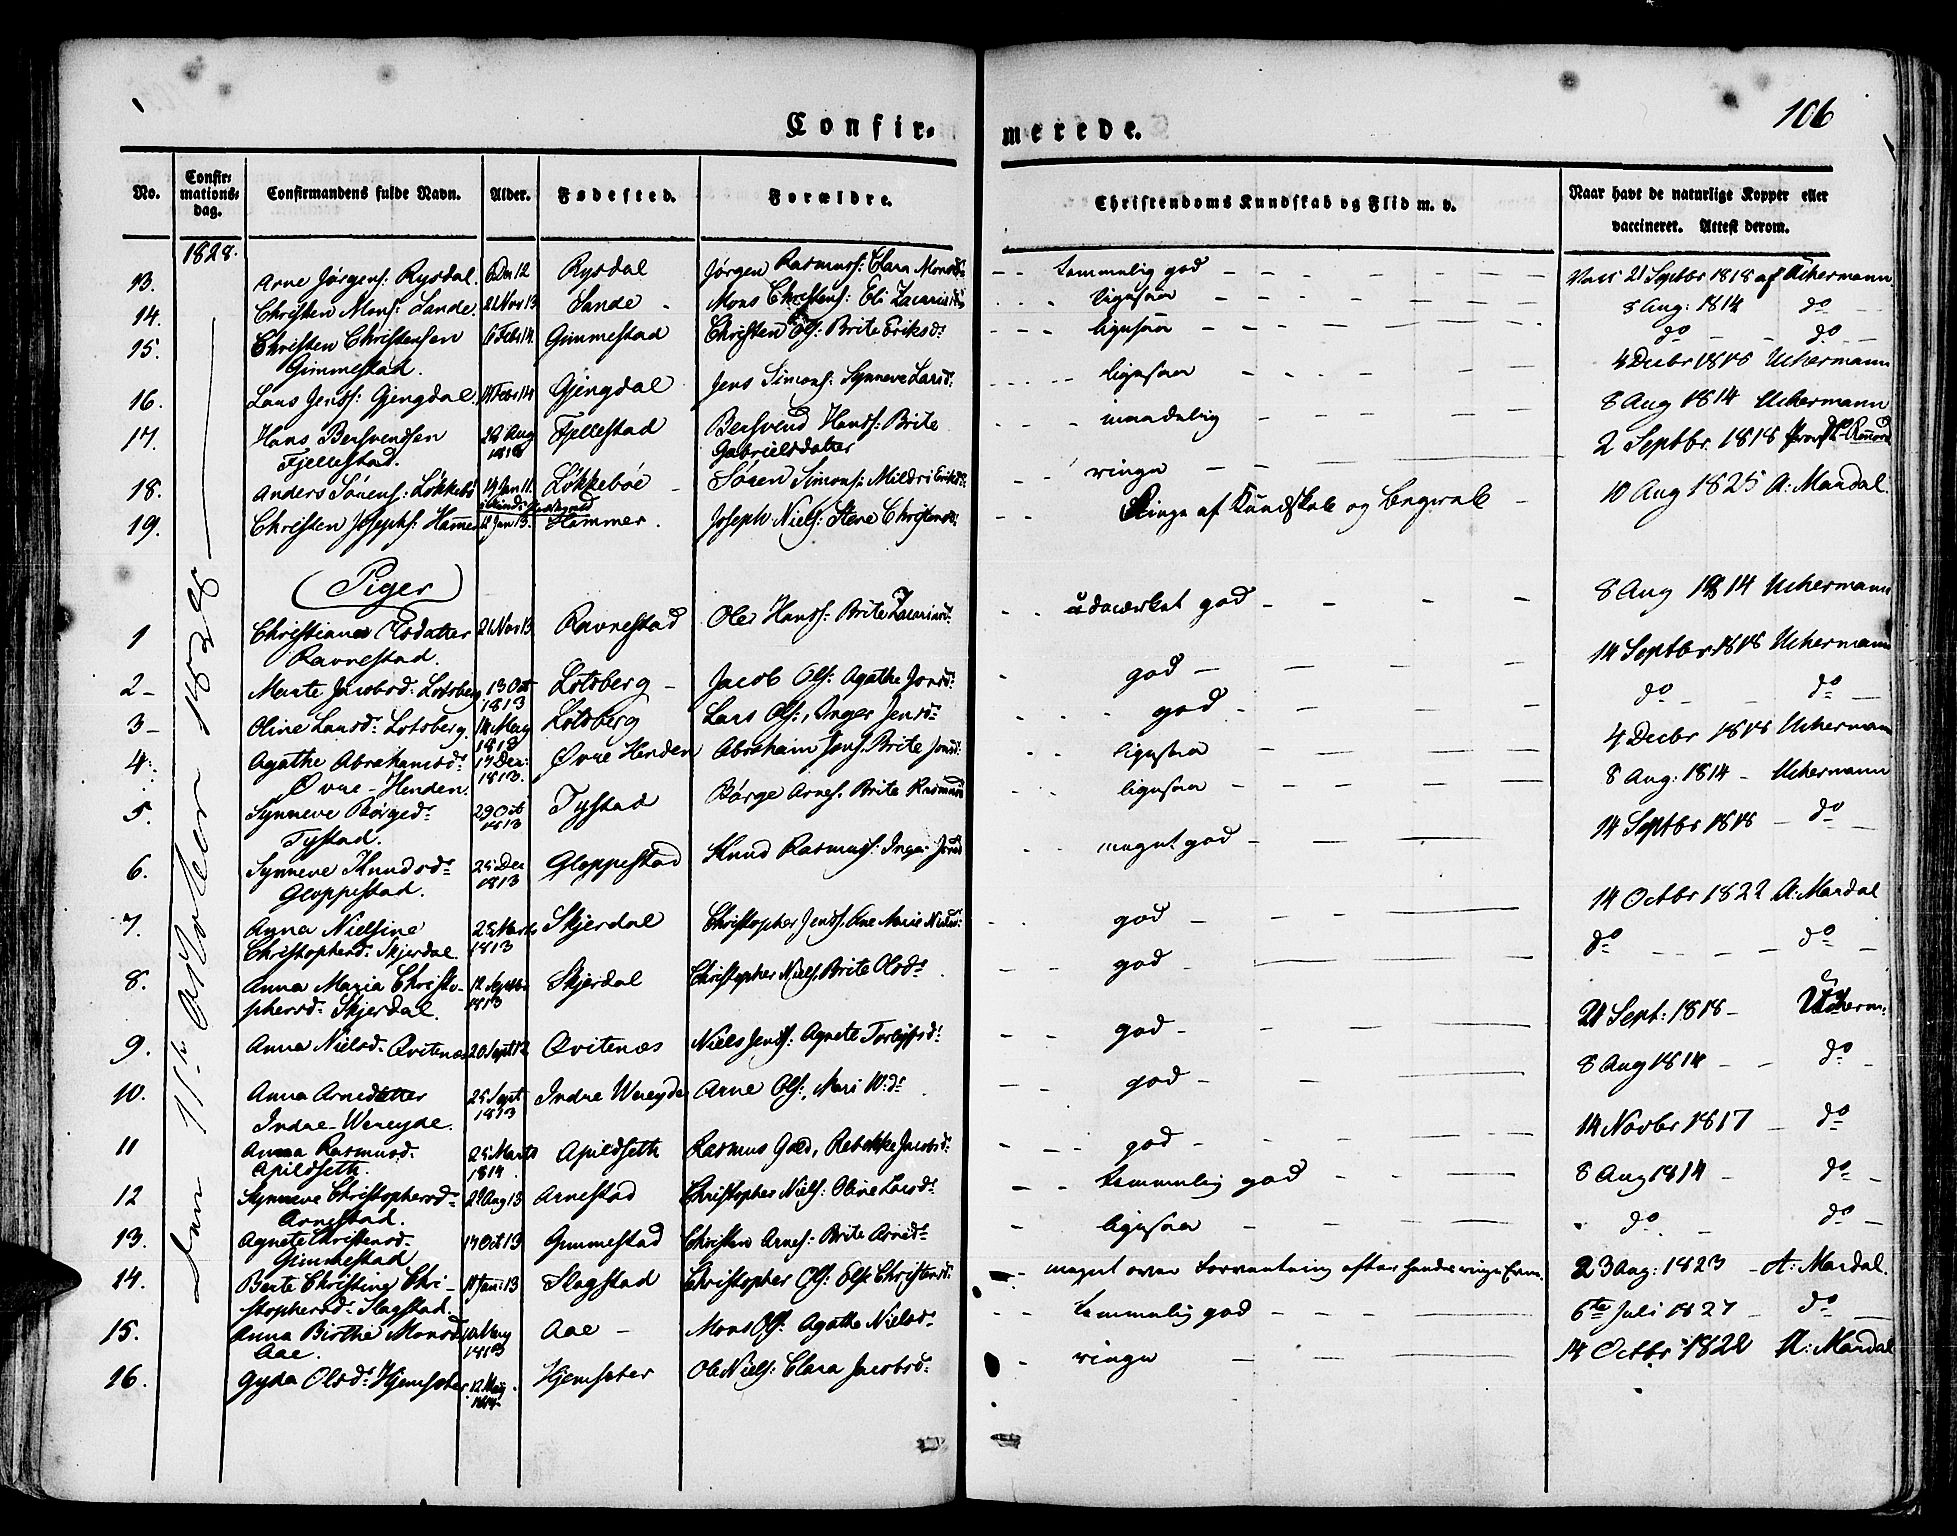 106
Confirmerede.
No. Confirmationsdag. Confirmandens fulde Navn. Alder. Fødested. Forældre. Christendoms Kundskab og Flid m. v. Naar havt de naturlige Kopper eller vaccineret. Attest derom.
1828.
13. Arne Jörgens: Rysdal. Rysdal Jörgen Rasmuss: Clara Monsd: temmelig god 21 Septbr 1818 af Uchermann
14. Christen Mons: Sande. 21 Nov 13 Sande Mons Christens: Eli Zacariasd: ligesaa 8 Aug: 1814 do
15. Christen Christensen 6 Febr 14. Gimmestad Christen Ols: Brite Eriksd: ligesaa do do
Gimmestad.
16. Lars Jens: Gjengdal. Febr 14 Gjengdal Jens Simons: Synneve Larsd: ligesaa 4 Decbr 1818 Uchermann
17. Hans Bersvendsen Aug Fjellestad Bersvend Hans: Brite maadelig 8 Aug 1814 Uchermann
Fjellestad. Gabrielsdatter
18. Anders Sörens: Lökkebö 14 Jan 11. Lökkeböe Sören Simons: Mildri Eriksd: ringe 2 Septbr. 1818
19. Christen Josephs: Hammer Jan 13. Hammer. Joseph Niels: Christensd: Ringe af Kundskab og begreb 10 Aug 1825 A: Mardal.
Piger
1 Christiane Olsdatter 21 Nov 13 Ravnestad Ole Hans: Brite Zacariasd: udmærket god 8 Aug 1814 Uchermann
Ravnestad.
2 Marte Jacobsd: Lotsberg 13 Oct Lotsberg Jacob Ols: Agathe Jonsd: god 14 Septbr 1818 Uchermann
1813
3 Oline Larsd: Lotsberg. 14 May Lotsberg Lars Ols:, Inger Jensd: god do do
1813
4. Agathe Abrahamsd: 17 Dec: Øvre Henden Abraham Jons: Brite Jonsd: ligesaa 4 Decbr 1818 Uchermann
Øvre Henden. 1813.
5. Synneve Börged: 29 Oct Tystad Börge Arnes: Brite Rasmusd: ligesaa 8 Aug: 1814 Uchermann
Tystad. 1813
6. Synneve Knudsd: 25 Dec Gloppestad Knud Rasmus: Inger Jonsd: meget god 14 Septbr 1818 do
Gloppestad. 1813
7. Anna Nielsine 25 Marts Skjerdal Christopher Jens: Ane Marie Nielsd: god 14 Octbr 1822 A: Mardal
Christophersd: Skjerdal. 1813
8. Anna Maria Christo- 12 Septbr Skjerdal Christopher Niels. Brite Olsd: god do do
phersd: Skjerdal. 1813
9. Anna Nielsd: Qvitenæs 20 Sept 12 Qvitenæs Niels Jens: Agnete Torleifsd: god 21 Sept: 1818 Ucherm:
10. Anna Arnedatter 25 Sept Indre Wereyde Arne Ols:, Mari god 8 Aug 1814 do
Indre Wereyde. 1813
11 Anna Rasmusd: 25 Marts Apildseth Rasmus Rebekke Jacobsd: god 14 Novbr 1817 do
Apildseth. 1814.
12 Synneve Christophersd: Aug 13 Arnestad Christopher Niels: Oline Larsd: temmelig god 8 Aug 1814 do
Arnestad.
13. Agnete Christensd: 17 Oct 13 Gimmestad Christen Arnes: Brite Arnesd: ligesaa do do
Gimmestad
14. Berte Christine Chri- Slagstad Christopher Ols: Else Christensd: meget over Forventning efter hendes ringe Evne. 23 Aug: 1823 A: Mardal.
stophersd: Slagstad.
15. Anna Birthe Monsd: May Aae Mons Ols: Agathe Nielsd: temmelig god 6te Juli 1827 do
Aae. 1813
16. Gyda Olsd: Hjemseter. 12 May Hjemseter Ole Niels: Clara Jacobsd: ringe 14 Octbr 1822 A: Mardal